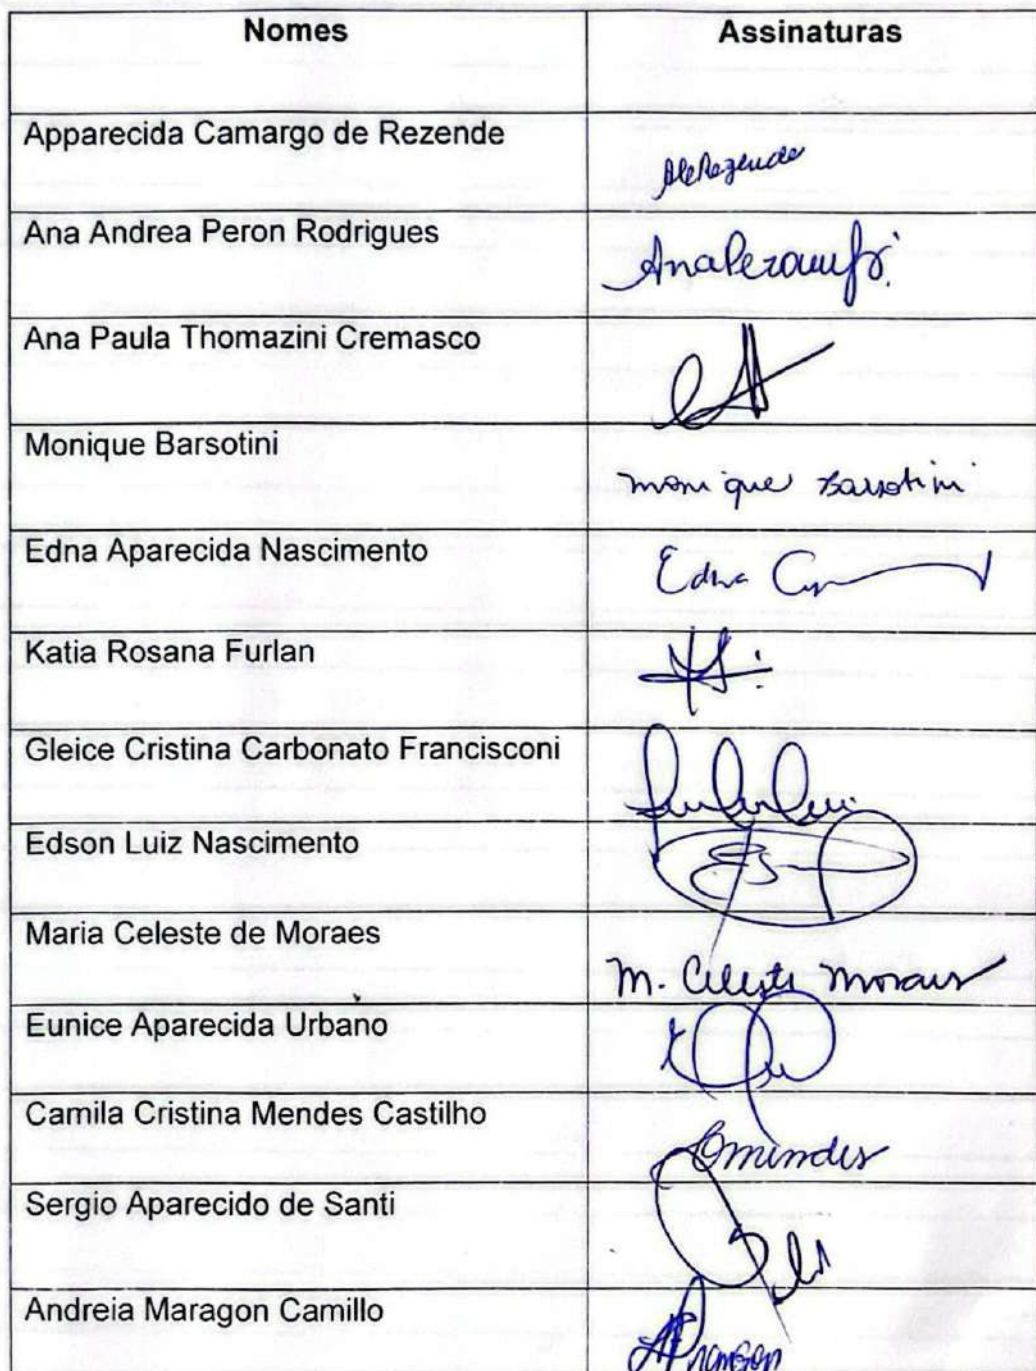 Nomes Assinaturas
Apparecida Camargo de Rezende
Ana Andrea Peron Rodrigues
Ana Paula Thomazini Cremasco
Monique Barsotini monique Barsotini
Edna Aparecida Nascimento Edna
Katia Rosana Furlan
Gleice Cristina Carbonato Francisconi
Edson Luiz Nascimento
Maria Celeste de Moraes M. Celeste Moraes
Eunice Aparecida Urbano
Camila Cristina Mendes Castilho Cmendes
Sergio Aparecido de Santi
Andreia Maragon Camillo